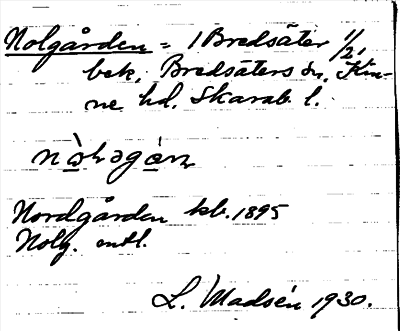 Nolgården = 1 Bredsäter 1/2,
bek. Bredsäters sn, Kin-
ne hd. Skarab. l.
Nordgården kb. 1895
Nolg. entl.
L. Madsén 1930.